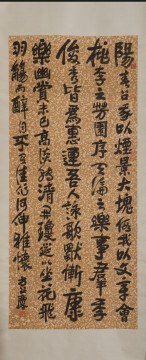 陽春召我以煙景大塊假我以文章會
桃李之芳園序天倫之樂事羣季
俊秀皆為惠連吾人詠歌獨慚康
樂幽賞未已高談轉清開瓊筵以坐花飛
羽觴而醉月不有佳作何伸雅懷